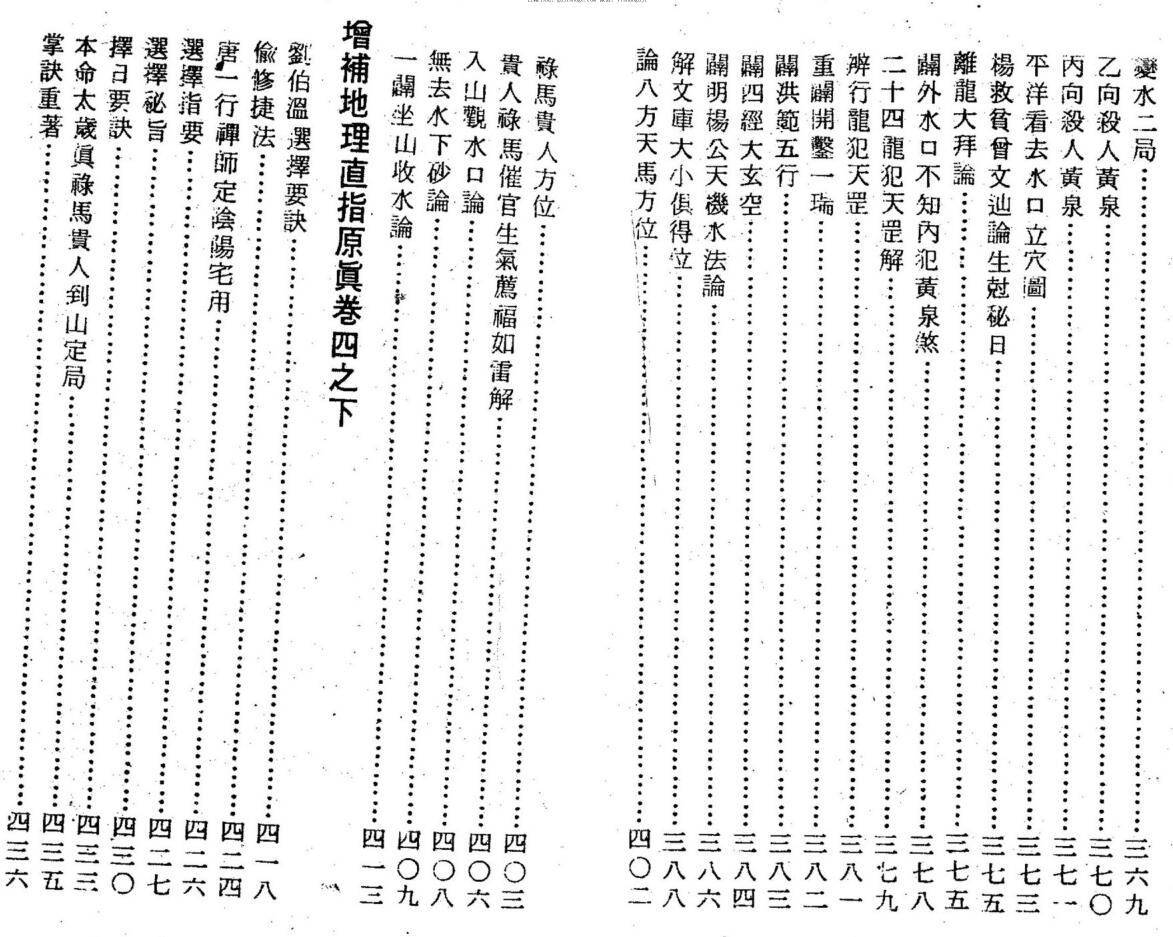 變水二局⋯⋯三六九
乙向殺人黃泉⋯⋯三七〇
丙向殺人黃泉⋯⋯三七一
平洋看去水口立穴圖⋯⋯三七三
楊救貧曾文辿論生尅秘日⋯⋯三七五
離龍大拜論⋯⋯三七五
闢外水口不知內犯黃泉煞⋯⋯三七八
二十四龍犯天罡解⋯⋯三七九
辨行龍犯天罡⋯⋯三八一
重闢開鑿一瑞⋯⋯三八二
闢洪範五行⋯⋯三八三
闢四經大玄空⋯⋯三八四
闢明楊公天機水法論⋯⋯三八六
解文庫大小俱得位⋯⋯三八八
論八方天馬方位⋯⋯四〇二
祿馬貴人方位⋯⋯四〇三
貴人祿馬催官生氣薦福如雷解⋯⋯四〇六
入山觀水口論⋯⋯四〇八
無去水下砂論⋯⋯四〇九
一闢坐山收水論⋯⋯四一三
增補地理直指原眞卷四之下
劉伯溫選擇要訣⋯⋯四一八
偷修捷法⋯⋯四二四
唐一行禪師定陰陽宅用⋯⋯四二六
選擇指要⋯⋯四二七
選擇秘旨⋯⋯四三〇
擇日要訣⋯⋯四三三
本命太歲眞祿馬貴人到山定局⋯⋯四三五
掌訣重著⋯⋯四三六